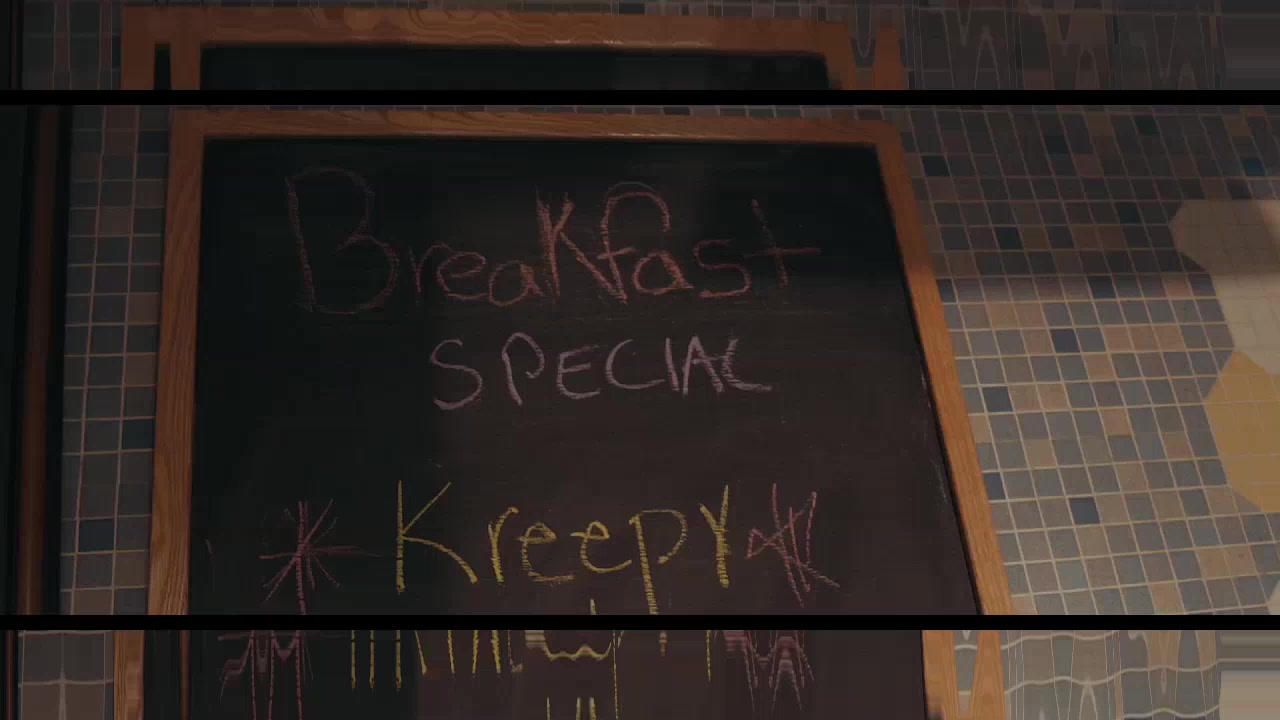 Breakfast
SPECIAL
Kreepy